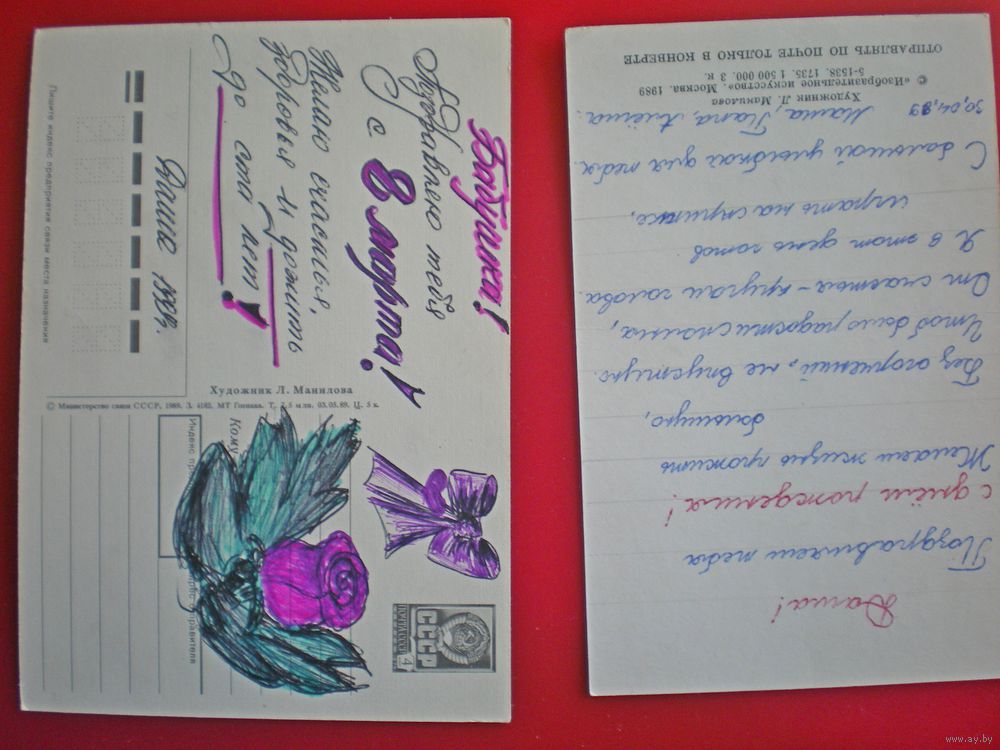 Бабушка!
Поздравляю тебя
с 8 марта!
Желаю счастья,
здоровья и дожить
до ста лет!
Даша 1998г.
Пишите индекс предприятия связи места назначения
Художник Л. Манилова
© Министерство связи СССР, 1989. З. 4182. МТ Гознака. Т. 2,5 млн. 03.05.89. Ц. 5 к.
Кому
СССР
ПОЧТА
4
Даша!
Поздравляем тебя
с днём рождения!
Желаем жизнь прожить
большую,
Без огорчений, не впустую.
Чтоб было радости сполна,
От счастья - кругом голова.
Я в этот день готов
играть на скрипке,
С большой улыбкой для тебя.
Мама, Папа, Алёша.
Художник Л. Манилова
© «Изобразительное искусство». Москва. 1989
5-1538. 1735. 1 500 000. 3 к.
ОТПРАВЛЯТЬ ПО ПОЧТЕ ТОЛЬКО В КОНВЕРТЕ
www.ay.by